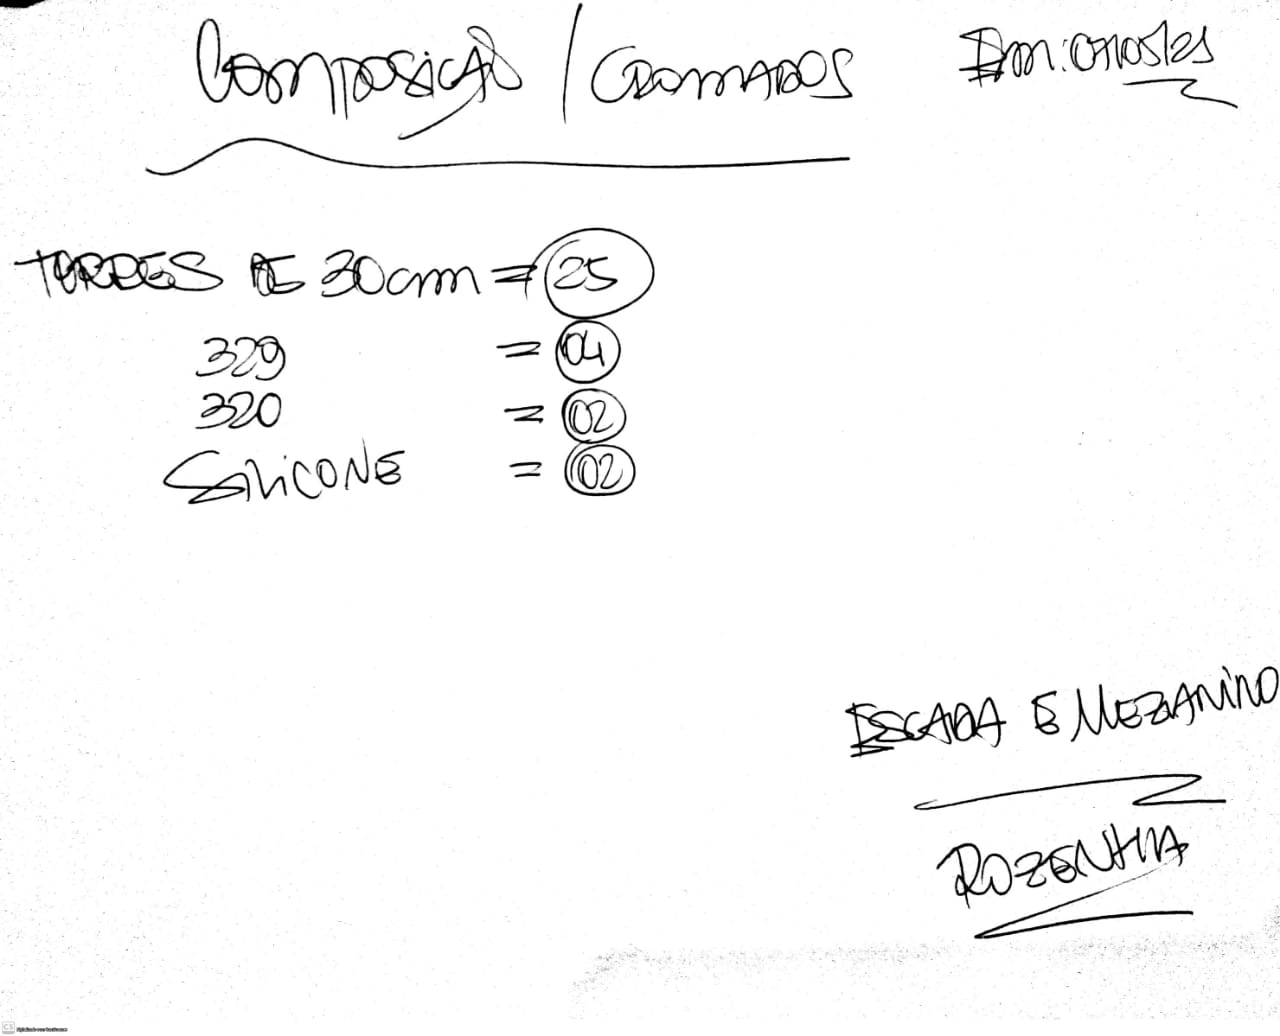 COMPOSIÇÃO / CROMADOS
Em: 07/05/21
TORRES DE 30cm = 25
329 = 04
320 = 02
SILICONE = 02
ESCADA E MEZANINO
ROZENHA
CS